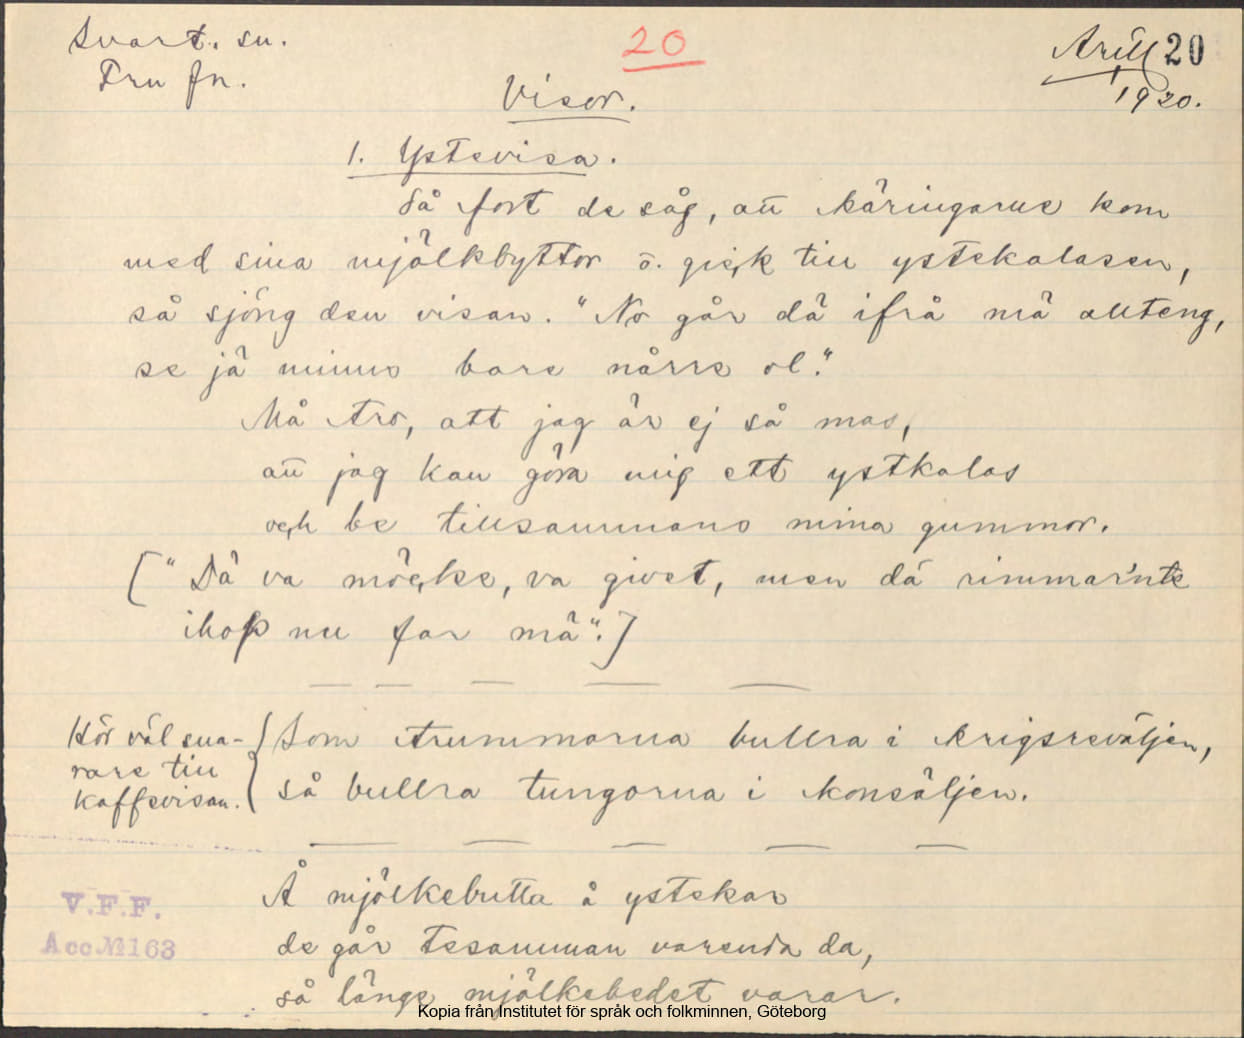 Svart. sn.
Fru fn.
20
Arill 20
1920.
Visor.
1. Ystevisa.
Så fort de såg, att käringarne kom
med sina mjölkbyttor o. gick till ystekalasen,
så sjöng den visan. "No går dä ifrå mä allteng,
se jä minns bare nårre ol."
Må tro, att jag är ej så mas,
att jag kan göra mig ett ystkalas
och be tillsammans mina gummor.
["Dä va möcke, va givet, men dä rimmar'nte
ihop nu far mä".]
Hör väl sna-
rare till
kaffevisan.
Som trummorna bullra i krigsreväljen,
så bullra tungorna i konsäljen.
Å mjölkebutta å ystekar
de går tesamman varenda da,
så länge mjölkebedet varar.
V.F.F.
Acc.№163
Kopia från Institutet för språk och folkminnen, Göteborg